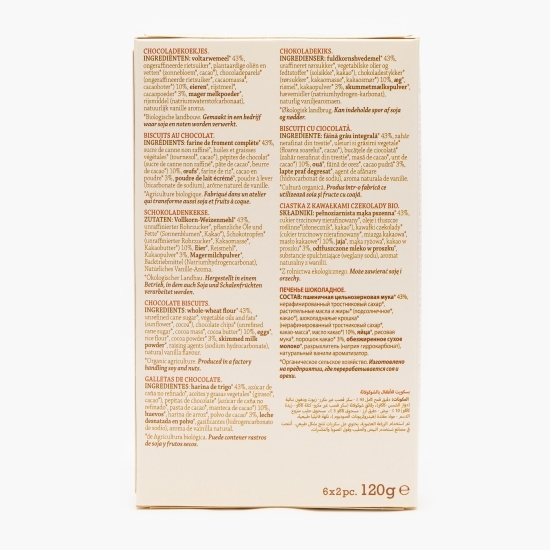 CHOCOLADEKOEKJES.
INGREDIËNTEN: voltarwemeel* 43%,
ongeraffineerde rietsuiker*, plantaardige oliën en
vetten* (zonnebloem*, cacao*), chocoladeparels*
(ongeraffineerde rietsuiker*, cacaomassa*,
cacaoboter*) 10%, eieren*, rijstmeel*,
cacaopoeder* 3%, mager melkpoeder*,
rijsmiddel (natriumwaterstofcarbonaat),
natuurlijk vanille aroma.
*Biologische landbouw. Gemaakt in een bedrijf
waar soja en noten worden verwerkt.
BISCUITS AU CHOCOLAT.
INGRÉDIENTS: farine de froment complète* 43%,
sucre de canne non raffiné*, huiles et graisses
végétales* (tournesol*, cacao*), pépites de chocolat*
(sucre de canne non raffiné*, pâte de cacao*, beurre
de cacao*) 10%, œufs*, farine de riz*, cacao en
poudre* 3%, poudre de lait écrémé*, poudre à lever
(bicarbonate de sodium), arôme naturel de vanille.
*Agriculture biologique. Fabriqué dans un atelier
qui transforme aussi soja et fruits à coque.
SCHOKOLADENKEKSE.
ZUTATEN: Vollkorn-Weizenmehl* 43%,
unraffinierter Rohrzucker*, pflanzliche Öle und
Fette* (Sonnenblumen*, Kakao*), Schokotropfen*
(unraffinierter Rohrzucker*, Kakaomasse*,
Kakaobutter*) 10%, Eier*, Reismehl*,
Kakaopulver* 3%, Magermilchpulver*,
Backtriebmittel (Natriumhydrogencarbonat),
Natürliches Vanille-Aroma.
*Ökologischer Landbau. Hergestellt in einem
Betrieb, in dem auch Soja und Schalenfrüchten
verarbeitet werden.
CHOCOLATE BISCUITS.
INGREDIENTS: whole-wheat flour* 43%,
unrefined cane sugar*, vegetable oils and fats*
(sunflower*, cocoa*), chocolate chips* (unrefined
cane sugar*, cocoa mass*, cocoa butter*) 10%, eggs*,
rice flour*, cocoa powder* 3%, skimmed milk
powder*, raising agent (sodium hydrocarbonate),
natural vanilla flavour.
*Organic agriculture. Produced in a factory
handling soy and nuts.
GALLETAS DE CHOCOLATE.
INGREDIENTES: harina de trigo* 43%, azúcar de
caña no refinado*, aceites y grasas vegetales* (girasol*,
cacao*), pepitas de chocolate* (azúcar de caña no
refinado*, pasta de cacao*, manteca de cacao*) 10%,
huevos*, harina de arroz*, polvo de cacao* 3%, leche
desnatada en polvo*, gasificantes (hidrogenocarbonato
de sodio), aroma de vainilla natural.
*de Agricultura biológica. Puede contener rastros
de soja y frutos secos.
CHOKOLADEKIKS.
INGREDIENSER: fuldkornshvedemel* 43%,
uraffineret rørsukker*, vegetabilske olier og
fedtstoffer* (solsikke*, kakao*), chokoladestykker*
(rørsukker*, kakaomasse*, kakaosmør*) 10%, æg*,
rismel*, kakaopulver* 3%, skummetmælkspulver*,
hævemidler (natriumhydrogen-karbonat),
naturlig vaniljearomaen.
*Økologisk landbrug. Kan indeholde spor af soja
og nødder.
BISCUIȚI CU CIOCOLATĂ.
INGREDIENTE: făină grâu integrală* 43%, zahăr
nerafinat din trestie*, uleiuri si grăsimi vegetale*
(floarea soarelui*, cacao*), bucățele de ciocolată*
(zahăr nerafinat din trestie*, masă de cacao*, unt de
cacao*) 10%, ouă*, făină de orez*, cacao pudră* 3%,
lapte praf degresat*, agent de afânare
(hidrocarbonat de sodiu), aroma naturala de vanilla.
*Cultură organică. Produs într-o fabrică ce
utilizează soia și fructe cu coajă.
CIASTKA Z KAWAŁKAMI CZEKOLADY BIO.
SKŁADNIKI: pełnoziarnista mąka pszenna* 43%,
cukier trzcinowy nierafinowany*, oleje i tłuszcze
roślinne* (słonecznik*, kakao*), kawałki czekolady*
(cukier trzcinowy nierafinowany*, miazga kakaowa*,
masło kakaowe*) 10%, jaja*, mąka ryżowa*, kakao w
proszku* 3%, odtłuszczone mleko w proszku*,
substancje spulchniające (węglany sodu), aromat
naturalny o wanilli.
*Z rolnictwa ekologicznego. Może zawierać soję i
orzechy.
ПЕЧЕНЬЕ ШОКОЛАДНОЕ.
СОСТАВ: пшеничная цельнозерновая мука* 43%,
нерафинированный тростниковый сахар*,
растительные масла и жиры* (подсолнечное*,
какао*), шоколадные крошки*
(нерафинированный тростниковый сахар*,
какао-масса*, масло какао*) 10%, яйца*, рисовая
мука*, порошок какао* 3%, обезжиренное сухое
молоко*, разрыхлитель (натрия гидрокарбонат),
натуральный ванили ароматизатор.
*Органическое сельское хозяйство. Изготовлено
на предприятии, где перерабатывается соя и
орехи.
6x2pc. 120g e